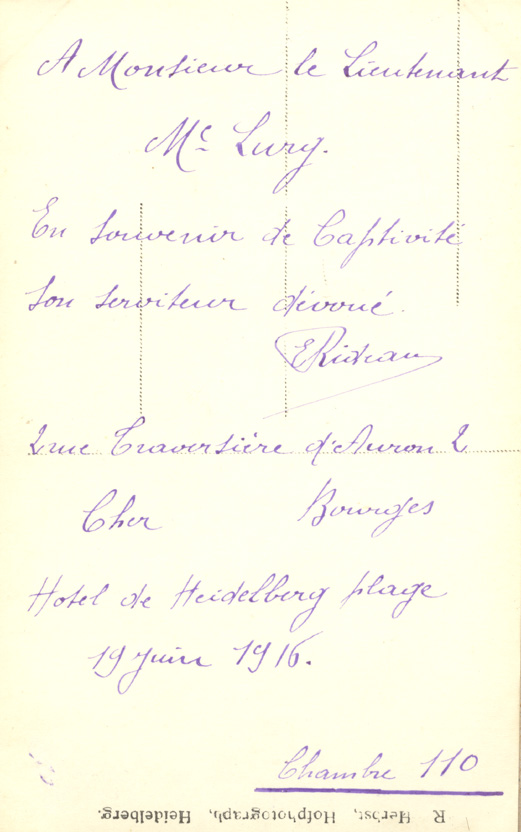 A Monsieur le Lieutenant
Mc Lurg.
En souvenir de Captivité
Son serviteur dévoué.
ERideau
2 rue Traversière d'Auron 2
Cher Bourges
Hotel de Heidelberg plage
19 juin 1916.
Chambre 110
R. Herbst, Hofphotograph, Heidelberg.